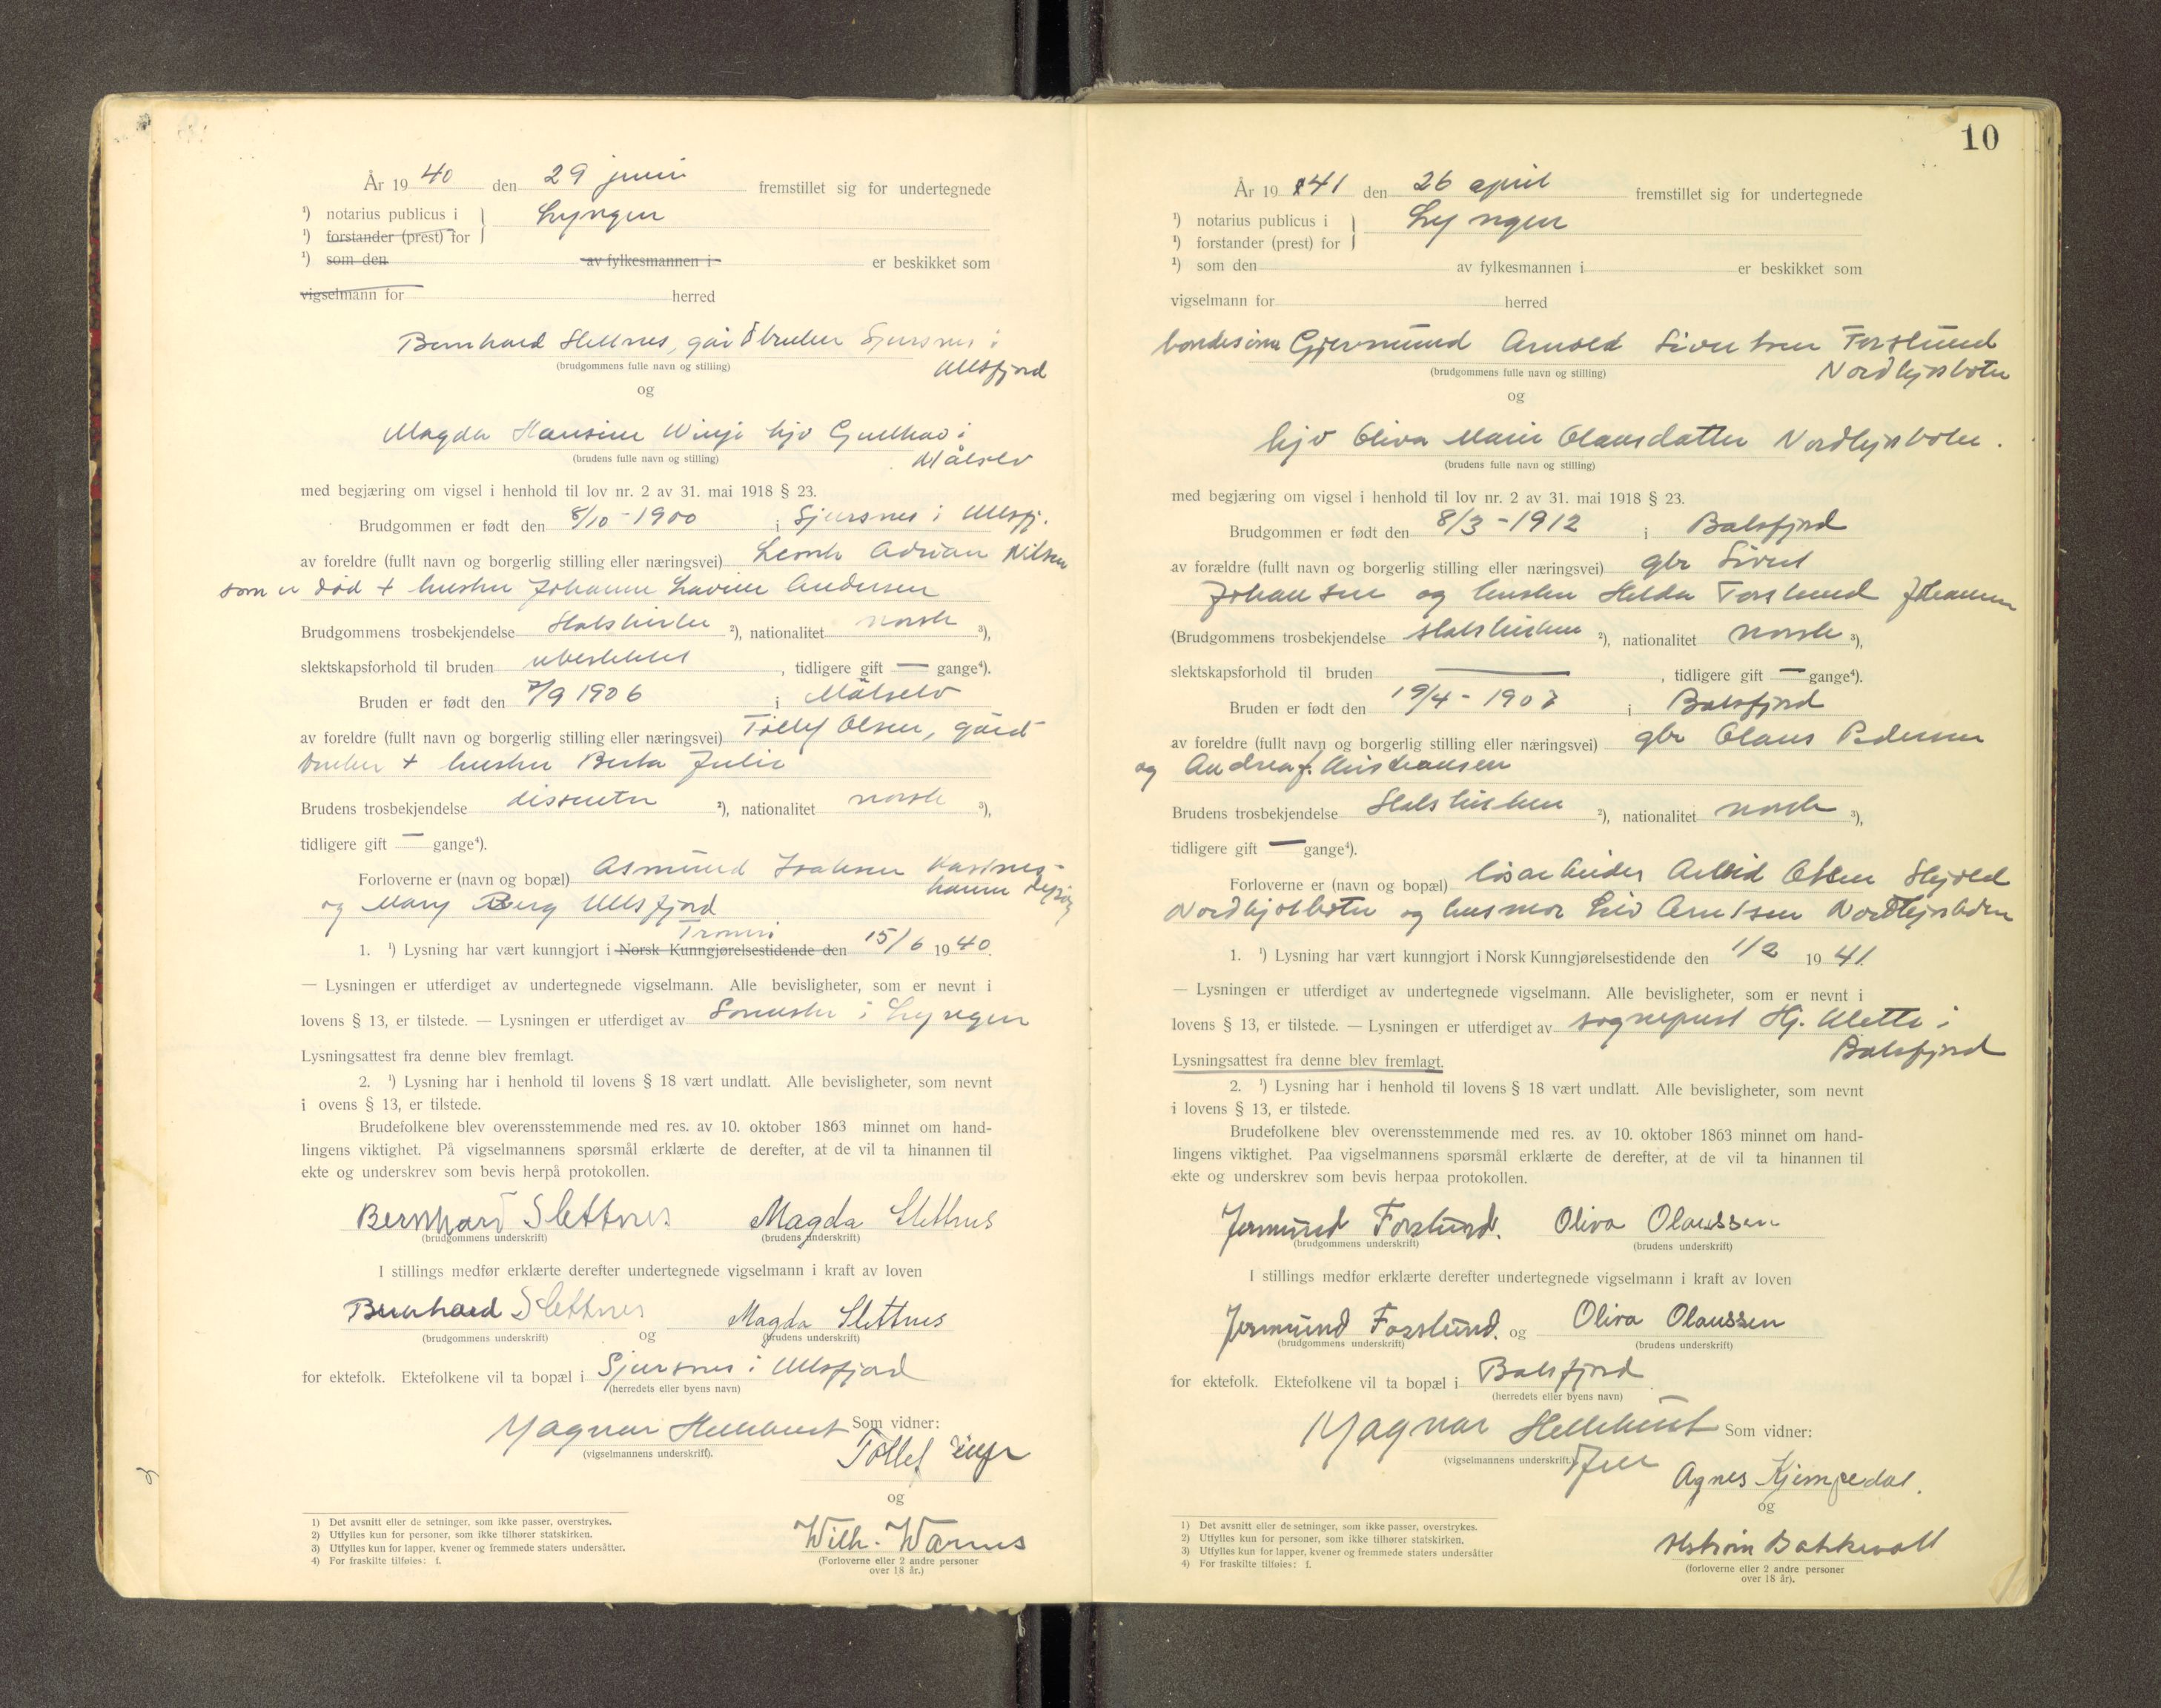 År 1940 den 29 juni fremstillet sig for undertegnede
¹) notarius publicus i Lyngen
¹) forstander (prest) for
¹) som den av fylkesmannen i er beskikket som
vigselmann for herred
Bernhard Slettnes, gårdbruker Sjursnes i
Ullsfjord
(brudgommens fulle navn og stilling)
og
Magda Hansine Winje hjv Gullhav i
Målselv
(brudens fulle navn og stilling)
med begjæring om vigsel i henhold til lov nr. 2 av 31. mai 1918 § 23.
Brudgommen er født den 8/10 - 1900 i Sjursnes i Ullsfj.
av foreldre (fullt navn og borgerlig stilling eller næringsvei) Adrian Nilsen
som er død + hustru Johanne Lavine Andersen
Brudgommens trosbekjendelse Statskirken ²), nationalitet norsk ³),
slektskapsforhold til bruden ubeslektet, tidligere gift — gange⁴).
Bruden er født den 7/9 1906 i Målselv
av foreldre (fullt navn og borgerlig stilling eller næringsvei) Tollef Olsen, gård
bruker + hustru Berta Julie
Brudens trosbekjendelse dissenter ²), nationalitet norsk ³),
tidligere gift — gange⁴).
Forloverne er (navn og bopæl) Asmund Isaksen
og Mary Berg Ullsfjord
Tromsø
1. ¹) Lysning har vært kunngjort i Norsk Kunngjørelsestidende den 15/6 1940.
— Lysningen er utferdiget av undertegnede vigselmann. Alle bevisligheter, som er nevnt i
lovens § 13, er tilstede. — Lysningen er utferdiget av Sorenskr i Lyngen
Lysningsattest fra denne blev fremlagt.
2. ¹) Lysning har i henhold til lovens § 18 vært undlatt. Alle bevisligheter, som nevnt
i ovens § 13, er tilstede.
Brudefolkene blev overensstemmende med res. av 10. oktober 1863 minnet om hand-
lingens viktighet. På vigselmannens spørsmål erklærte de derefter, at de vil ta hinannen til
ekte og underskrev som bevis herpå protokollen.
Bernhard Slettnes Magda Slettnes
(brudgommens underskrift) (brudens underskrift)
I stillings medfør erklærte derefter undertegnede vigselmann i kraft av loven
Bernhard Slettnes og Magda Slettnes
(brudgommens underskrift) (brudens underskrift)
for ektefolk. Ektefolkene vil ta bopæl i Sjursnes i Ullsfjord
(herredets eller byens navn)
Magnar Hellebust Som vidner:
(vigselmannens underskrift).
Tollef
og
Wilh. Warnes
(Forloverne eller 2 andre personer
over 18 år.)
1) Det avsnitt eller de setninger, som ikke passer, overstrykes.
2) Utfylles kun for personer, som ikke tilhører statskirken.
3) Utfylles kun for lapper, kvener og fremmede staters undersåtter.
4) For fraskilte tilføies: f.
10
År 1941 den 26 april fremstillet sig for undertegnede
¹) notarius publicus i Lyngen
¹) forstander (prest) for
¹) som den av fylkesmannen i er beskikket som
vigselmann for herred
bondesønn Gjermund Arnold Sivertsen Forslund
Nordkjosbotn
(brudgommens fulle navn og stilling)
og
hjv Oliva Marie Olausdatter Nordkjosbotn.
(brudens fulle navn og stilling)
med begjæring om vigsel i henhold til lov nr. 2 av 31. mai 1918 § 23.
Brudgommen er født den 8/3 - 1912 i Balsfjord
av forældre (fullt navn og borgerlig stilling eller næringsvei) gbr Sivert
Johansen og hustru Helda Forslund Johansen
(Brudgommens trosbekjendelse statskirken ²), nationalitet norsk ³),
slektskapsforhold til bruden —, tidligere gift — gange⁴).
Bruden er født den 19/4 - 1907 i Balsfjord
av foreldre (fullt navn og borgerlig stilling eller næringsvei) gbr Olaus Pedersen
og Andrea f. Kristiansen
Brudens trosbekjendelse Statskirken ²), nationalitet norsk ³),
tidligere gift — gange⁴).
Forloverne er (navn og bopæl) løsarbeider Arvid Olsen
Nordkjosbotn og husmor Liv Arntsen Nordkjosbotn
1. ¹) Lysning har vært kunngjort i Norsk Kunngjørelsestidende den 1/2 1941.
— Lysningen er utferdiget av undertegnede vigselmann. Alle bevisligheter, som er nevnt i
lovens § 13, er tilstede. — Lysningen er utferdiget av sogneprest Hj. Klette i
Balsfjord
Lysningsattest fra denne blev fremlagt.
2. ¹) Lysning har i henhold til lovens § 18 vært undlatt. Alle bevisligheter, som nevnt
i lovens § 13, er tilstede.
Brudefolkene blev overensstemmende med res. av 10. oktober 1863 minnet om hand-
lingens viktighet. Paa vigselmannens spørsmål erklærte de derefter, at de vil ta hinannen til
ekte og underskrev som bevis herpaa protokollen.
Jermund Forslund. Oliva Olaussen
(brudgommens underskrift) (brudens underskrift)
I stillings medfør erklærte derefter undertegnede vigselmann i kraft av loven
Jermund Forslund. og Oliva Olaussen
(brudgommens underskrift) (brudens underskrift)
for ektefolk. Ektefolkene vil ta bopæl i Balsfjord
(herredets eller byens navn)
Magnar Hellebust Som vidner:
(vigselmannens underskrift.)
Agnes Kjempedal.
og
Bakkevoll
(forloverne eller 2 andre personer
over 18 år).
1) Det avsnitt eller de setninger, som ikke passer, overstrykes.
2) Utfylles kun for personer, som ikke tilhører statskirken.
3) Utfylles kun for lapper, kvener og fremmede staters undersåtter
4) For fraskilte tilføies: f.